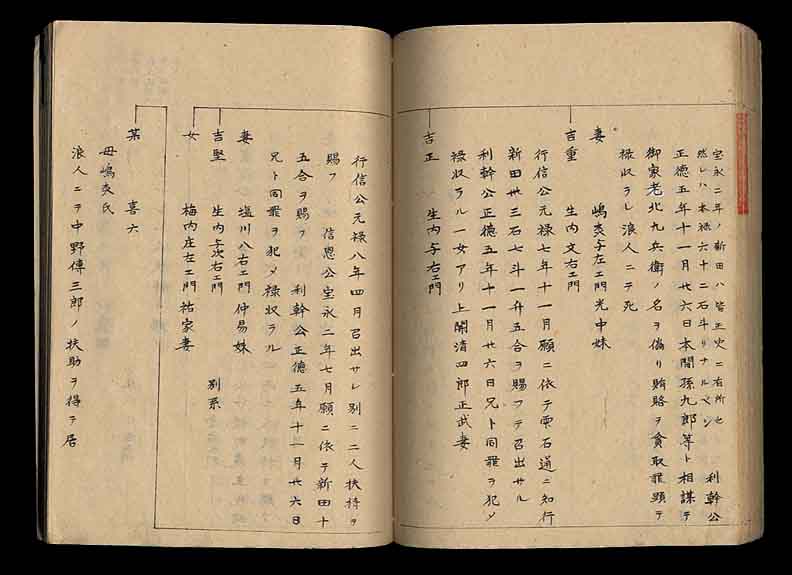 宝永二年ノ新田ハ皆正史ニ有所也
然レハ本禄六十二石斗リナルベシ 利幹公
正徳五年十一月廿六日本間孫九郎等ト相謀テ
御家老北九兵衛ノ名ヲ偽リ賄賂ヲ貪取罪顕テ
禄収ラレ浪人ニテ死
妻 嶋突与左エ門光中妹
吉重 生内文右エ門
行信公元禄七年十一月願ニ依テ雫石通ニ知行
新田廿三石七斗一升五合ヲ賜フテ召出サル
利幹公正徳五年十一月廿六日兄ト同罪ヲ犯メ
禄収ラル一女アリ上関清四郎正武妻
吉正 生内与右エ門
行信公元禄八年四月召出サレ別ニ二人扶持ヲ
賜フ 信恩公宝永二年七月願ニ依テ新田十
五合ヲ賜フ 利幹公正徳五年十一月廿六日
兄ト同罪ヲ犯メ禄収ラル
妻 塩川八右エ門仲易妹
吉堅 生内与次右エ門 別系
女 梅内庄左エ門祐家妻
某 喜六
母嶋突氏
浪人ニテ中野傳三郎ノ扶助ヲ得テ居